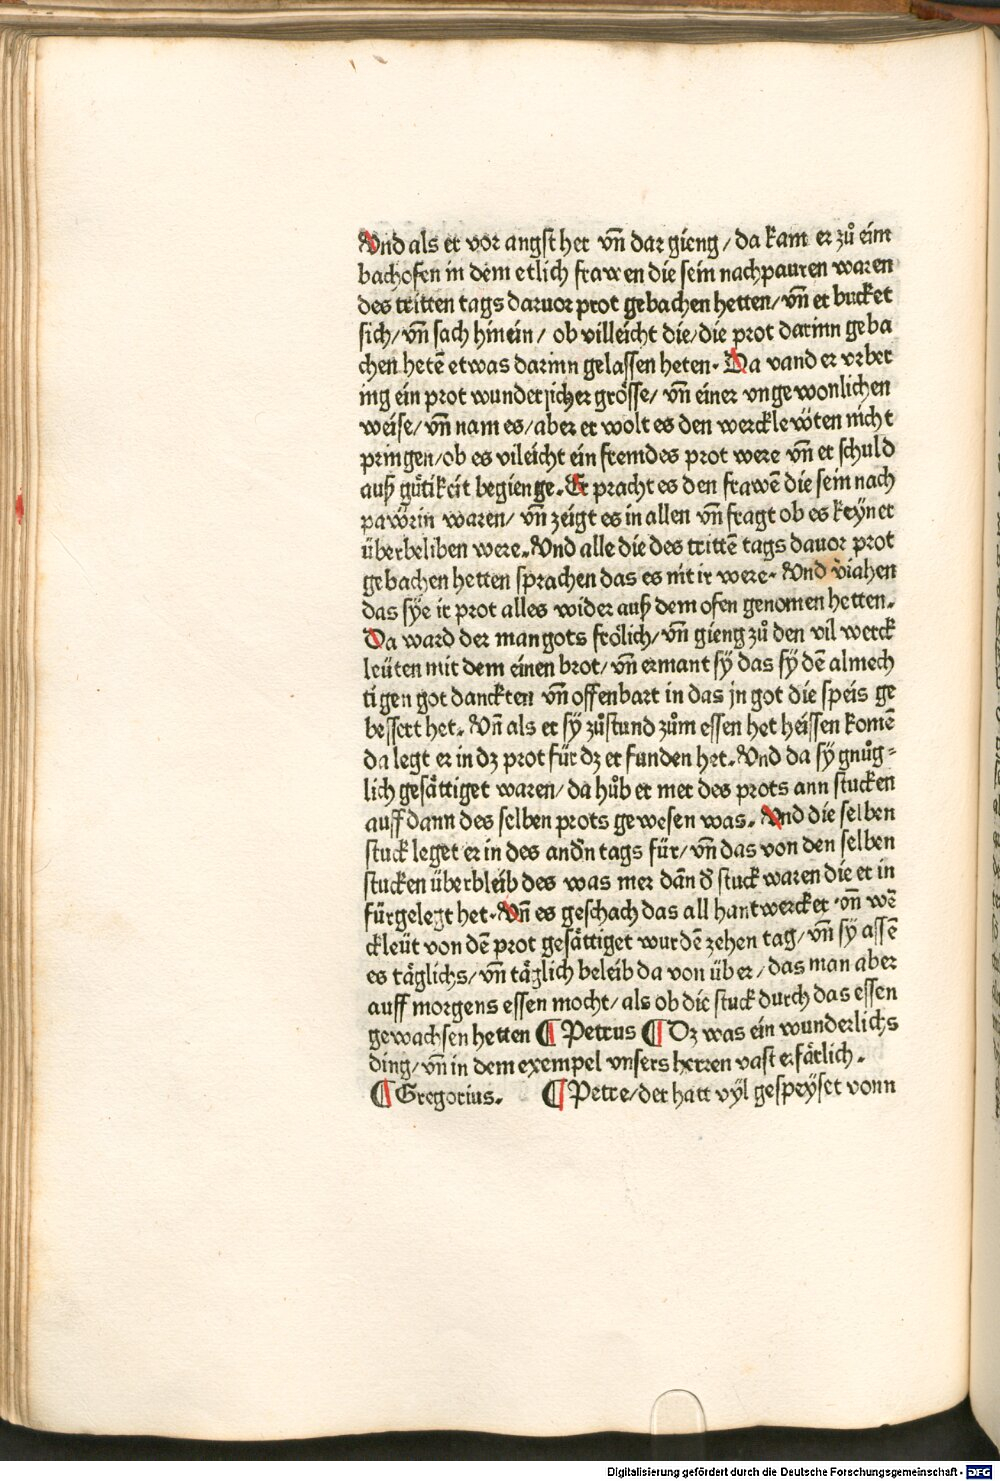 Vnd als er vor angst her vn̄ dar gieng / da kam er zů eim
bachofen in dem etlich frawen die sein nachpauren waren
des tritten tags daruor prot gebachen hetten / vn̄ er bucket
sich / vn̄ sach hinein / ob villeicht die / die prot darinn geba
chen hetē etwas darinn gelassen heten. Da vand er vrber
ing ein prot wunderlicher grösse / vn̄ einer vngewonlichen
weise / vn̄ nam es / aber er wolt es den wercklewten nicht
pringen / ob es vileicht ein fremdes prot were vn̄ er schuld
auß gütikeit begienge. Er pracht es den frawē die sein nach
pawrin waren / vn̄ zeigt es in allen vn̄ fragt ob es keyner
überbeliben were. Vnd alle die des trittē tags dauor prot
gebachen hetten sprachen das es nit ir were. Vnd v̄iahen
das sÿe ir prot alles wider auß dem ofen genomen hetten.
Da ward der man gots frölich / vn̄ gieng zů den vil werck
leüten mit dem einen brot / vn̄ ermant sÿ das sÿ dē almech
tigen got danckten vn̄ offenbart in das jn got die speis ge
bessert het. Vn̄ als er sÿ zůstund zům essen het heissen komē
da legt er in dz prot für dz er funden het. Vnd da sÿ gnůg=
lich gesättiget waren / da hůb er mer des prots ann stucken
auff dann des selben prots gewesen was. Vnd die selben
stuck leget er in des andn̄ tags für / vn̄ das von den selben
stucken überbleib des was mer dān đ stuck waren die er in
fürgelegt het. Vn̄ es geschach das all hantwercker vn̄ wē
ckleüt von dē prot gesättiget wurdē zehen tag / vn̄ sÿ assē
es täglichs / vn̄ täglich beleib da von über / das man aber
auff morgens essen mocht / als ob die stuck durch das essen
gewachsen hetten ¶ Petrus ¶ Dz was ein wunderlichs
ding / vn̄ in dem exempel vnsers herren vast erfärlich.
¶ Gregorius. ¶ Petre / der hatt vÿl gespeÿset vonn
Digitalisierung gefördert durch die Deutsche Forschungsgemeinschaft - DFG